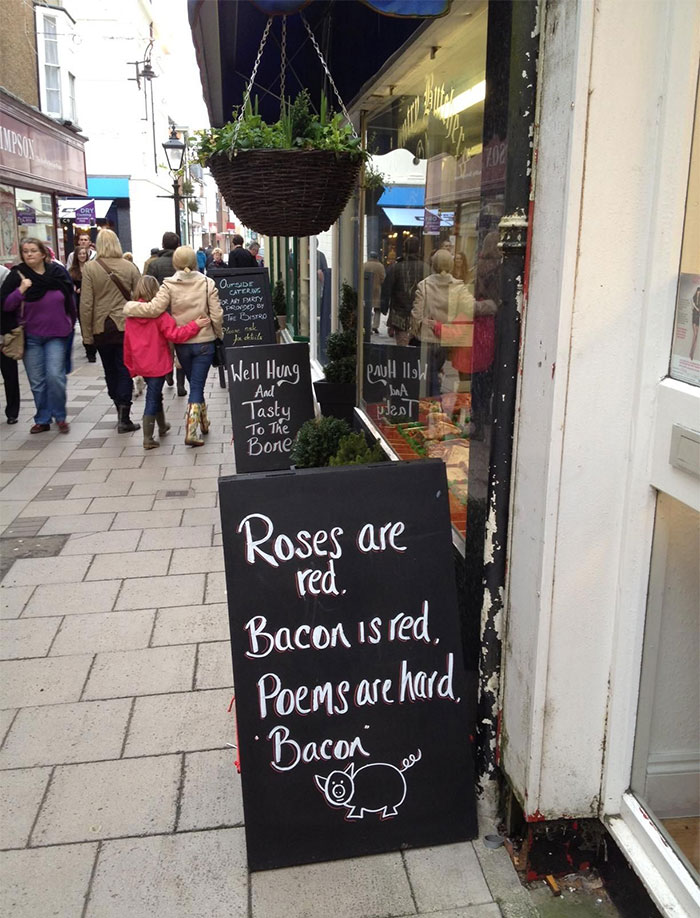 Roses are
red.
Bacon is red,
Poems are hard,
"Bacon"
Well Hung
And
Tasty
To The
Bone
Outside
Catering
For any Party
Provided by
The Bistro
Please ask
for details
MPSON